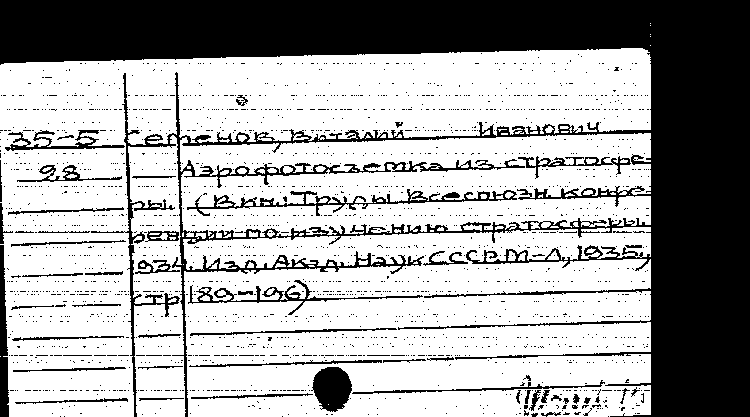 35-5 Семенов, Виталий Иванович
28 Аэрофотосъемка из стратосфе-
ры. (В кн.: Труды Всесоюзн. конфе-
ренции по изучению стратосферы.
1934. Изд. Акад. Наук СССР. М-Л, 1935,
стр 189-196).